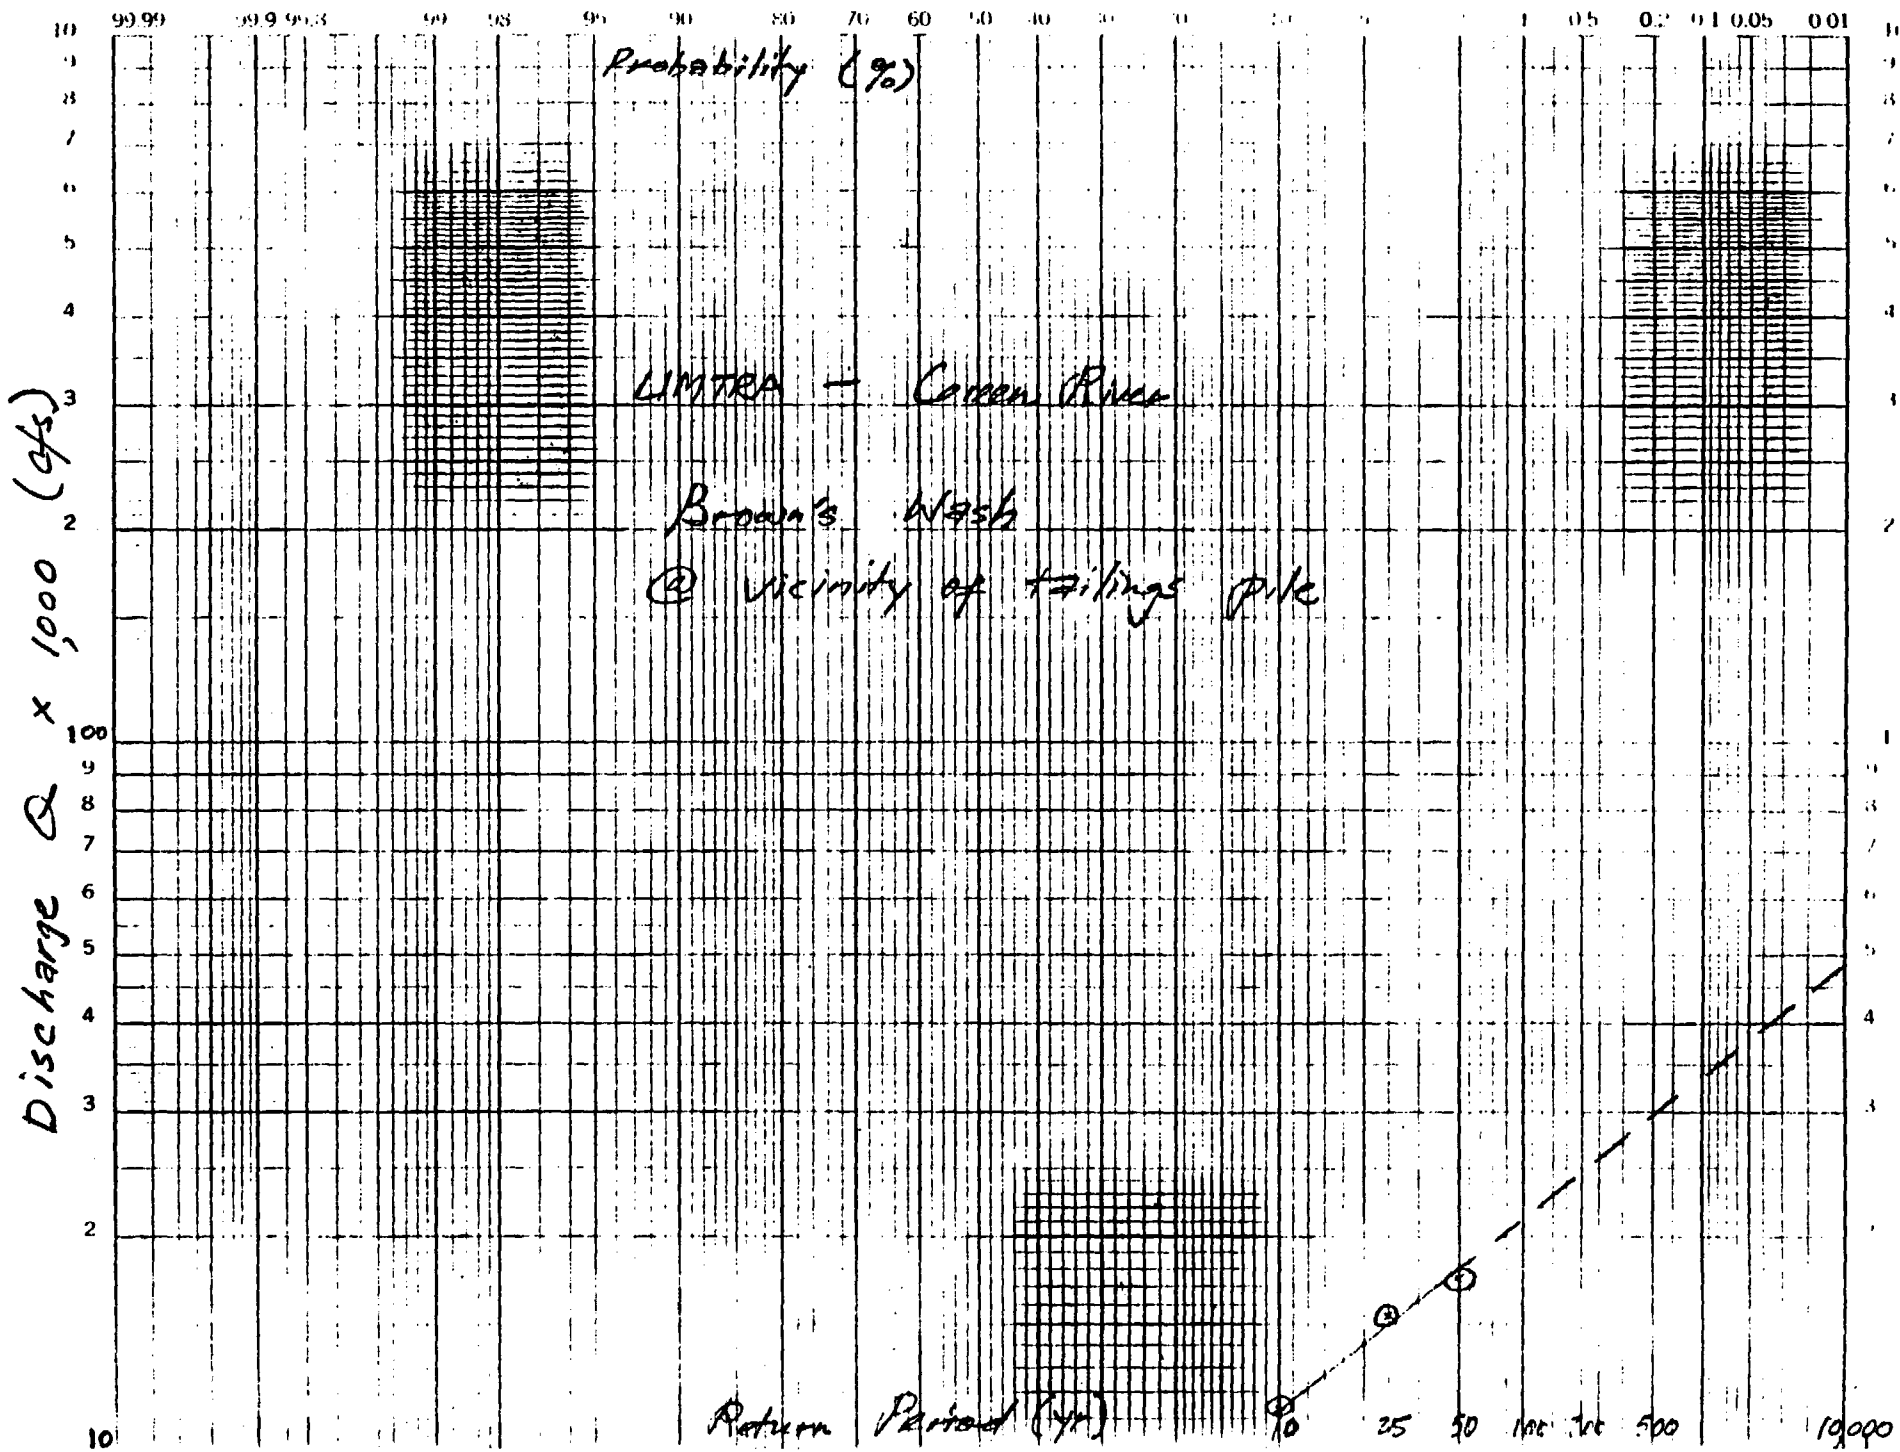 99.99 99.9 99.8 99 98 95 90 80 70 60 50 40 30 20 10 5 2 1 0.5 0.2 0.1 0.05 0.01
Probability (%)
10
9
8
7
6
5
4
3
2
100
9
8
7
6
5
4
3
2
10
Discharge Q x 1,000 (cfs)
UMTRA - Green River
Brown's Wash
@ vicinity of tailings pile
9
8
7
6
5
4
3
2
1
9
8
7
6
5
4
3
Return Period (yr)
10 25 50 100 200 500 10,000